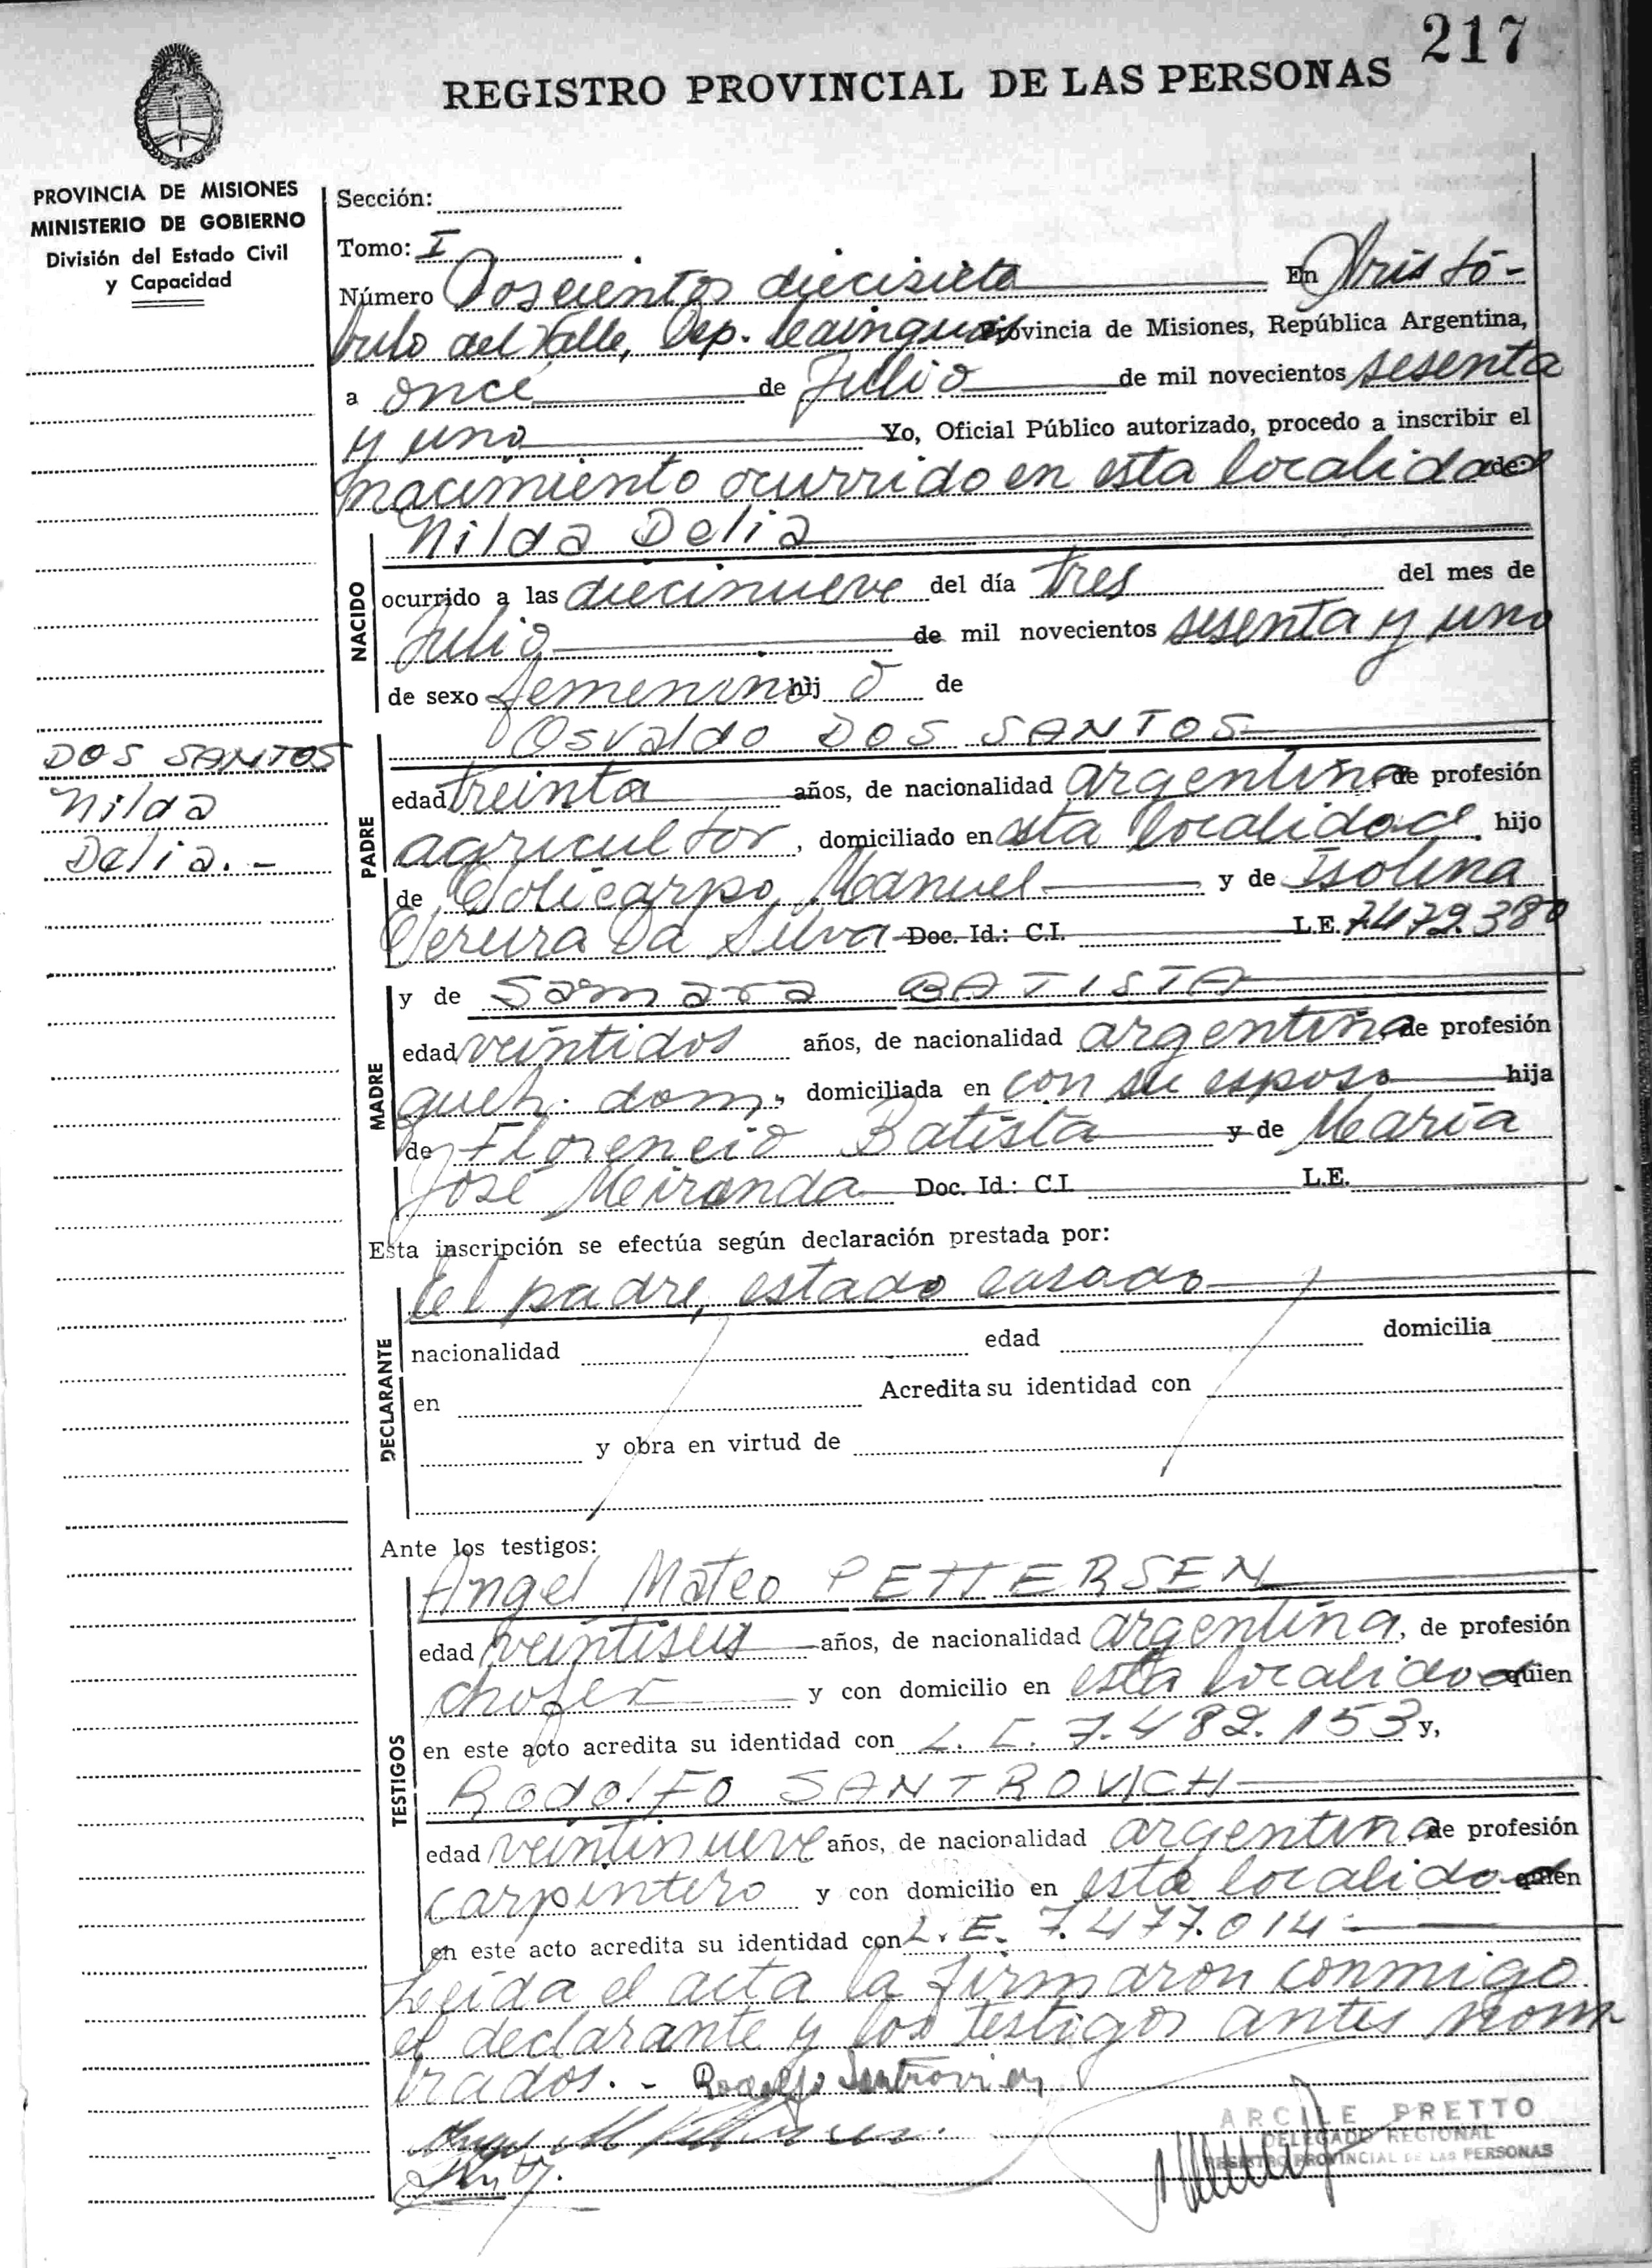 217
REGISTRO PROVINCIAL DE LAS PERSONAS
PROVINCIA DE MISIONES
MINISTERIO DE GOBIERNO
División del Estado Civil
y Capacidad
Sección:
Tomo: I
Número Doscientos diecisiete En Aristó-
bulo del Valle, Dep. Cainguás Provincia de Misiones, República Argentina,
a once de Julio de mil novecientos sesenta
y uno Yo, Oficial Público autorizado, procedo a inscribir el
nacimiento ocurrido en esta localidad de:
Nilda Delia
NACIDO
ocurrido a las diecinueve del día tres del mes de
Julio de mil novecientos sesenta y uno
de sexo femenino hij o de
Osvaldo DOS SANTOS
DOS SANTOS
Nilda
Delia.-
PADRE
edad treinta años, de nacionalidad argentina de profesión
agricultor, domiciliado en esta localidad, hijo
de Policarpo Manuel y de Isolina
Pereira Da Silva Doc. Id.: C.I. L.E. 7472.380
y de Samara BATISTA
MADRE
edad veintidos años, de nacionalidad argentina de profesión
queh. dom., domiciliada en con su esposo hija
de Florencio Batista y de María
José Meiranda Doc. Id.: C.I. L.E.
Esta inscripción se efectúa según declaración prestada por:
El padre, estado casado
DECLARANTE
nacionalidad edad domicilia
en Acredita su identidad con
y obra en virtud de
Ante los testigos:
Angel Mateo PETTERSEN
TESTIGOS
edad veintiseis años, de nacionalidad argentina, de profesión
chofer y con domicilio en esta localidad quien
en este acto acredita su identidad con L. E. 7.482.153 y,
Rodolfo SANTROVICH
edad veintinueve años, de nacionalidad argentina de profesión
carpintero y con domicilio en esta localidad quién
en este acto acredita su identidad con L. E. 7.477.014.-
Leída el acta la firmaron conmigo
el declarante y los testigos antes nom
brados.- Rodolfo Santrovich
ARCILE PRETTO
DELEGADO REGIONAL
REGISTRO PROVINCIAL DE LAS PERSONAS